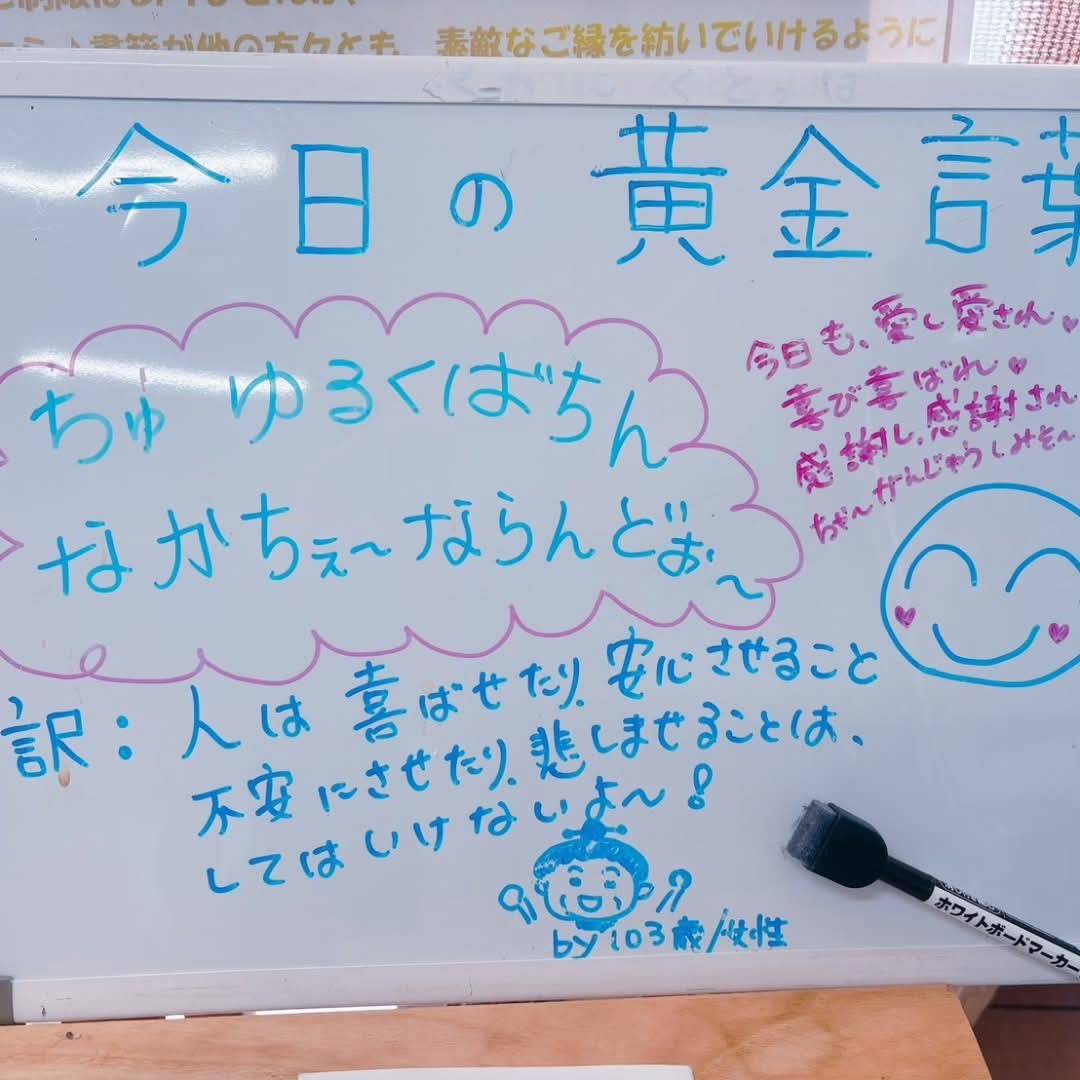 素敵なご縁を紡いでいけるように
今日の黄金言葉
ちゅ ゆるくばちん
なかちぇ〜ならんどぉ〜
今日も、愛し愛され♥
喜び喜ばれ♥
感謝し、感謝され
ちゃ〜がんじゅうしみそ〜
訳：人は喜ばせたり、安心させること
不安にさせたり、悲しませることは、
してはいけないよ〜！
by 103歳/女性
ホワイトボードマーカー